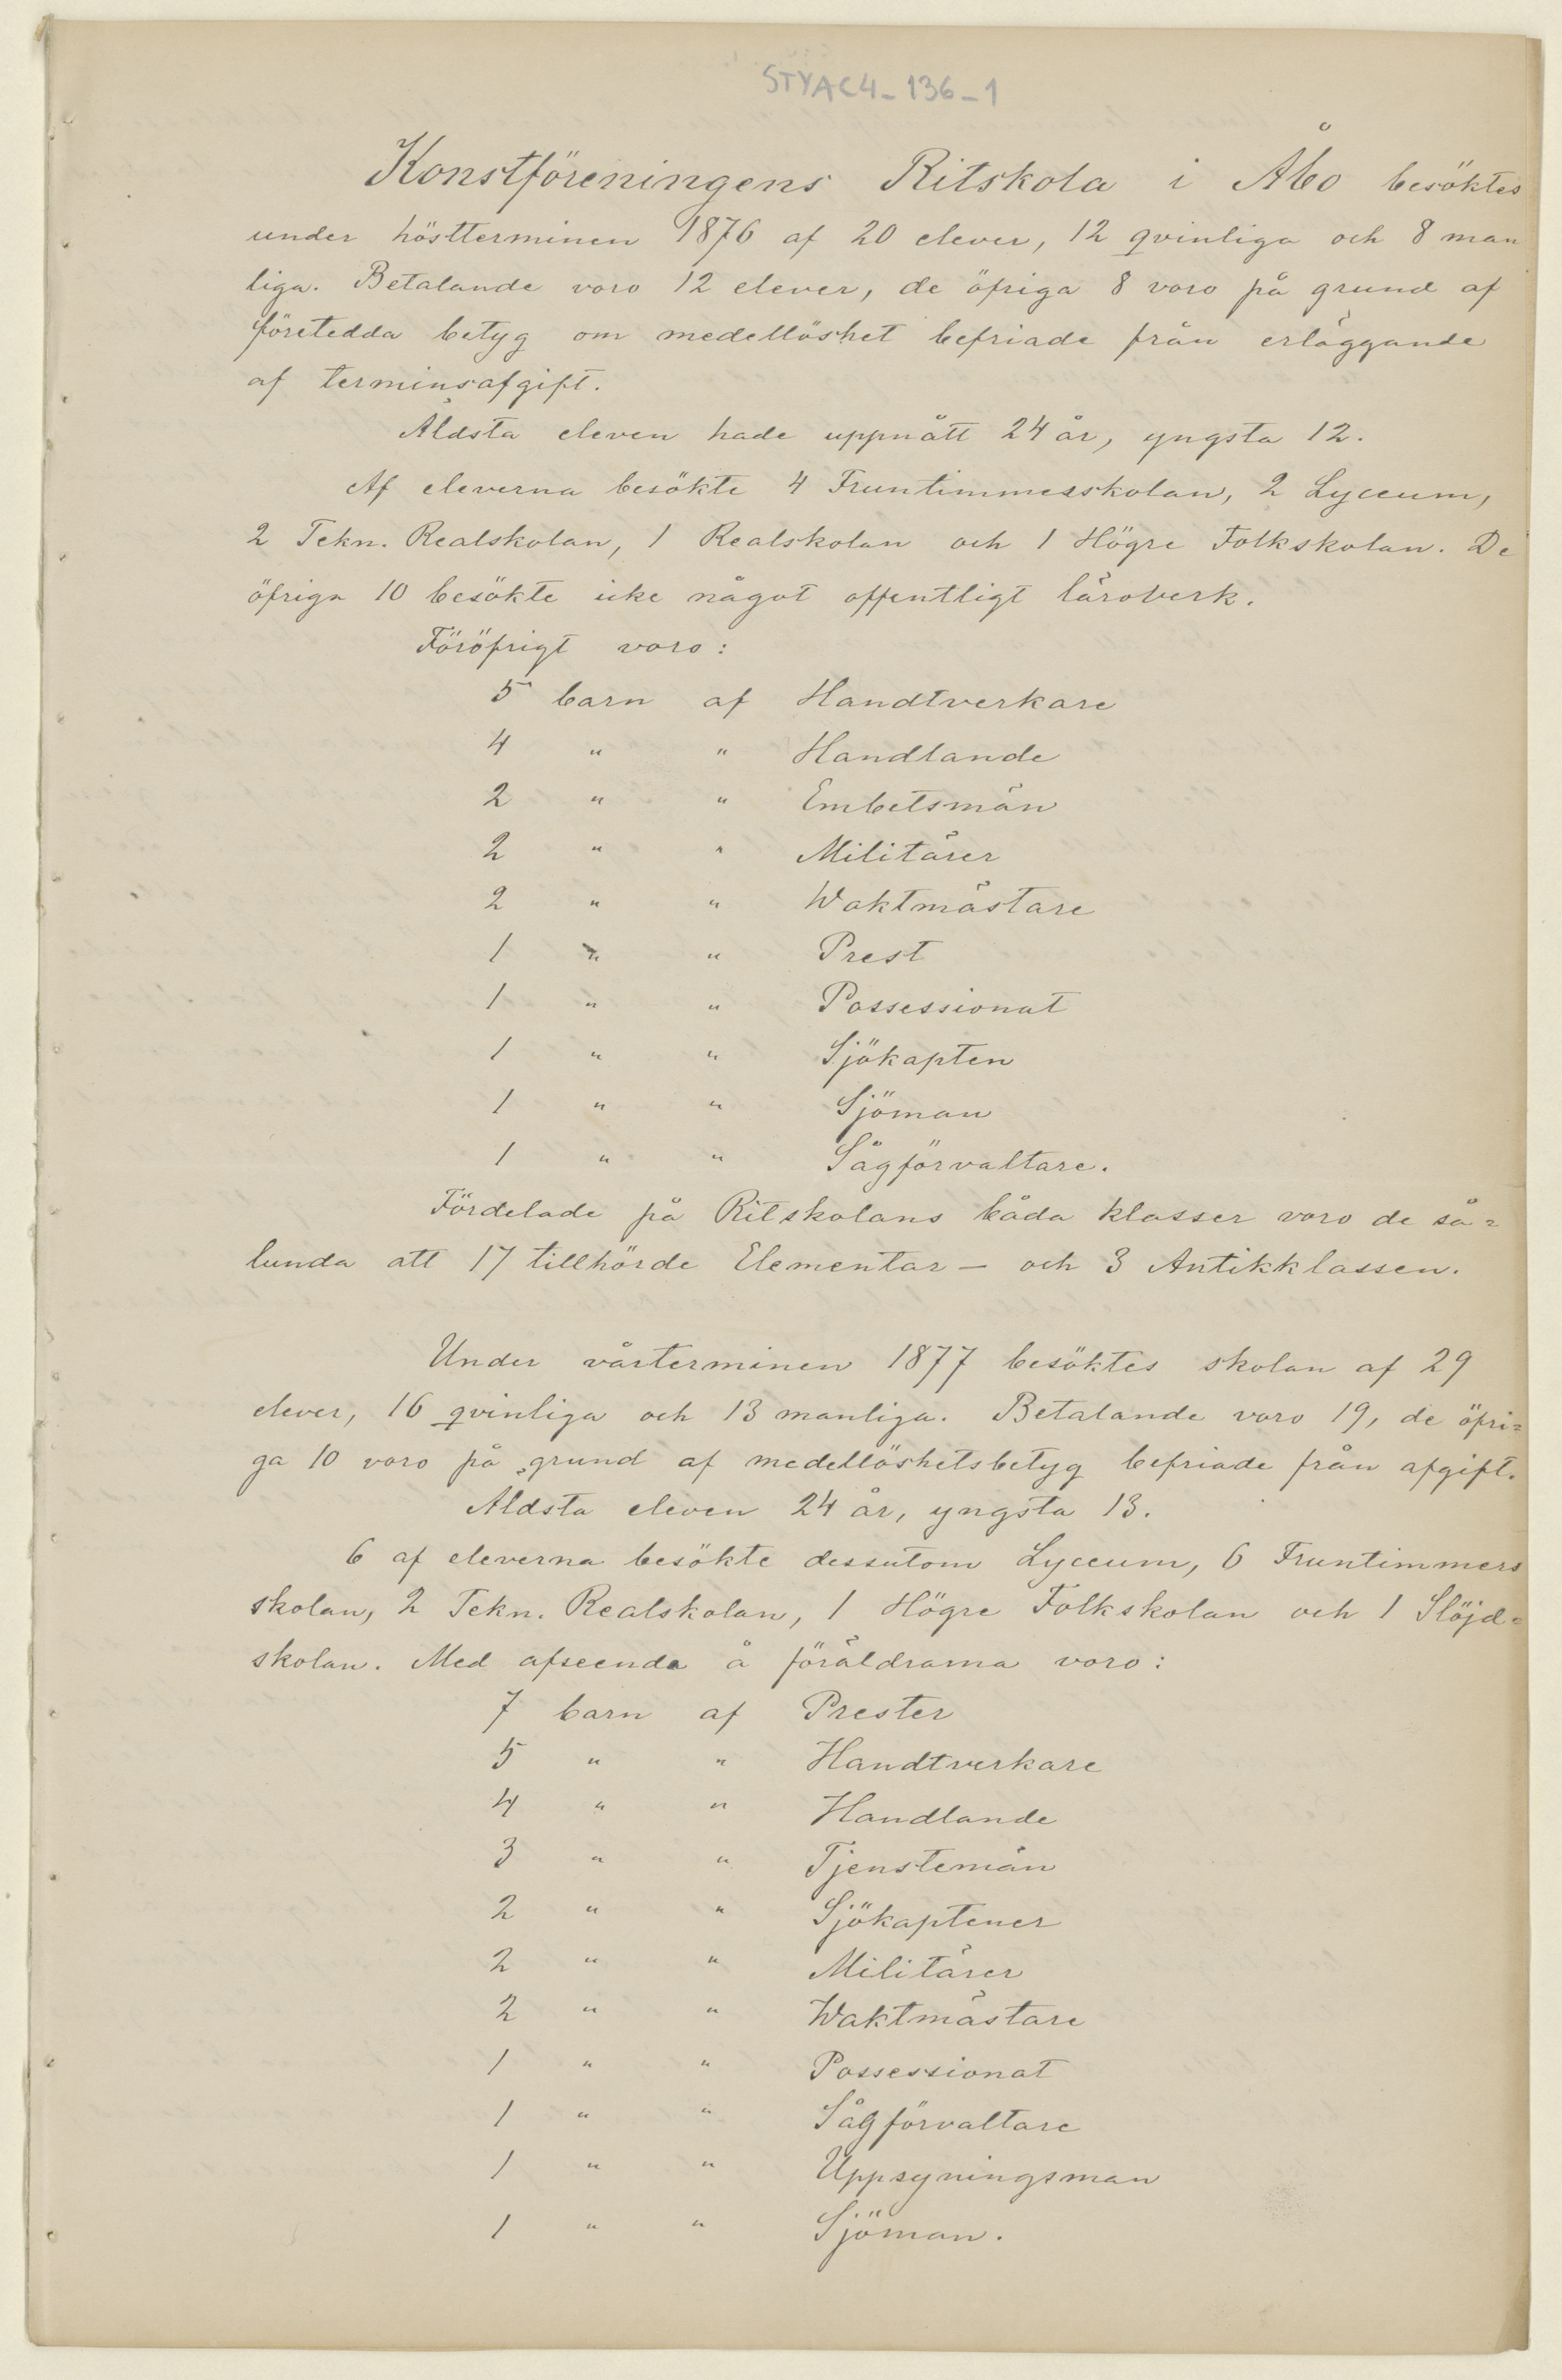 STYAC4_136_1
Konstföreningens Ritskola i Åbo besöktes
under höstterminen 1876 af 20 elever, 12 qvinliga och 8 man
liga. Betalande voro 12 elever, de öfriga 8 voro på grund af
företedda betyg om medellöshet befriade från erläggande
af terminsafgift.
Äldsta eleven hade uppnått 24 år, yngsta 12.
Af eleverna besökte 4 Fruntimmersskolan, 2 Lyceum,
2 Tekn. Realskolan, 1 Realskolan och 1 Högre Folkskolan. De
öfriga 10 besökte icke något offentligt läroverk.
Föröfrigt voro:
5 barn af Handtverkare
4 " " Handlande
2 " " Embetsmän
2 " " Militärer
2 " " Waktmästare
1 " " Prest
1 " " Possessionat
1 " " Sjökapten
1 " " Sjöman
1 " " Sågförvaltare.
Fördelade på Ritskolans båda klasser voro de så=
lunda att 17 tillhörde Elementar- och 3 Antikklassen.
Under vårterminen 1877 besöktes skolan af 29
elever, 16 qvinliga och 13 manliga. Betalande voro 19, de öfri=
ga 10 voro på grund af medellöshetsbetyg befriade från afgift.
Äldsta eleven 24 år, yngsta 13.
6 af eleverna besökte dessutom Lyceum, 6 Fruntimmers
skolan, 2 Tekn. Realskolan, 1 Högre Folkskolan och 1 Slöjd=
skolan. Med afseende å föräldrarna voro:
7 barn af Prester
5 " " Handtverkare
4 " " Handlande
3 " " Tjenstemän
2 " " Sjökaptener
2 " " Militärer
2 " " Waktmästare
1 " " Possessionat
1 " " Sågförvaltare
1 " " Uppsyningsman
1 " " Sjöman.